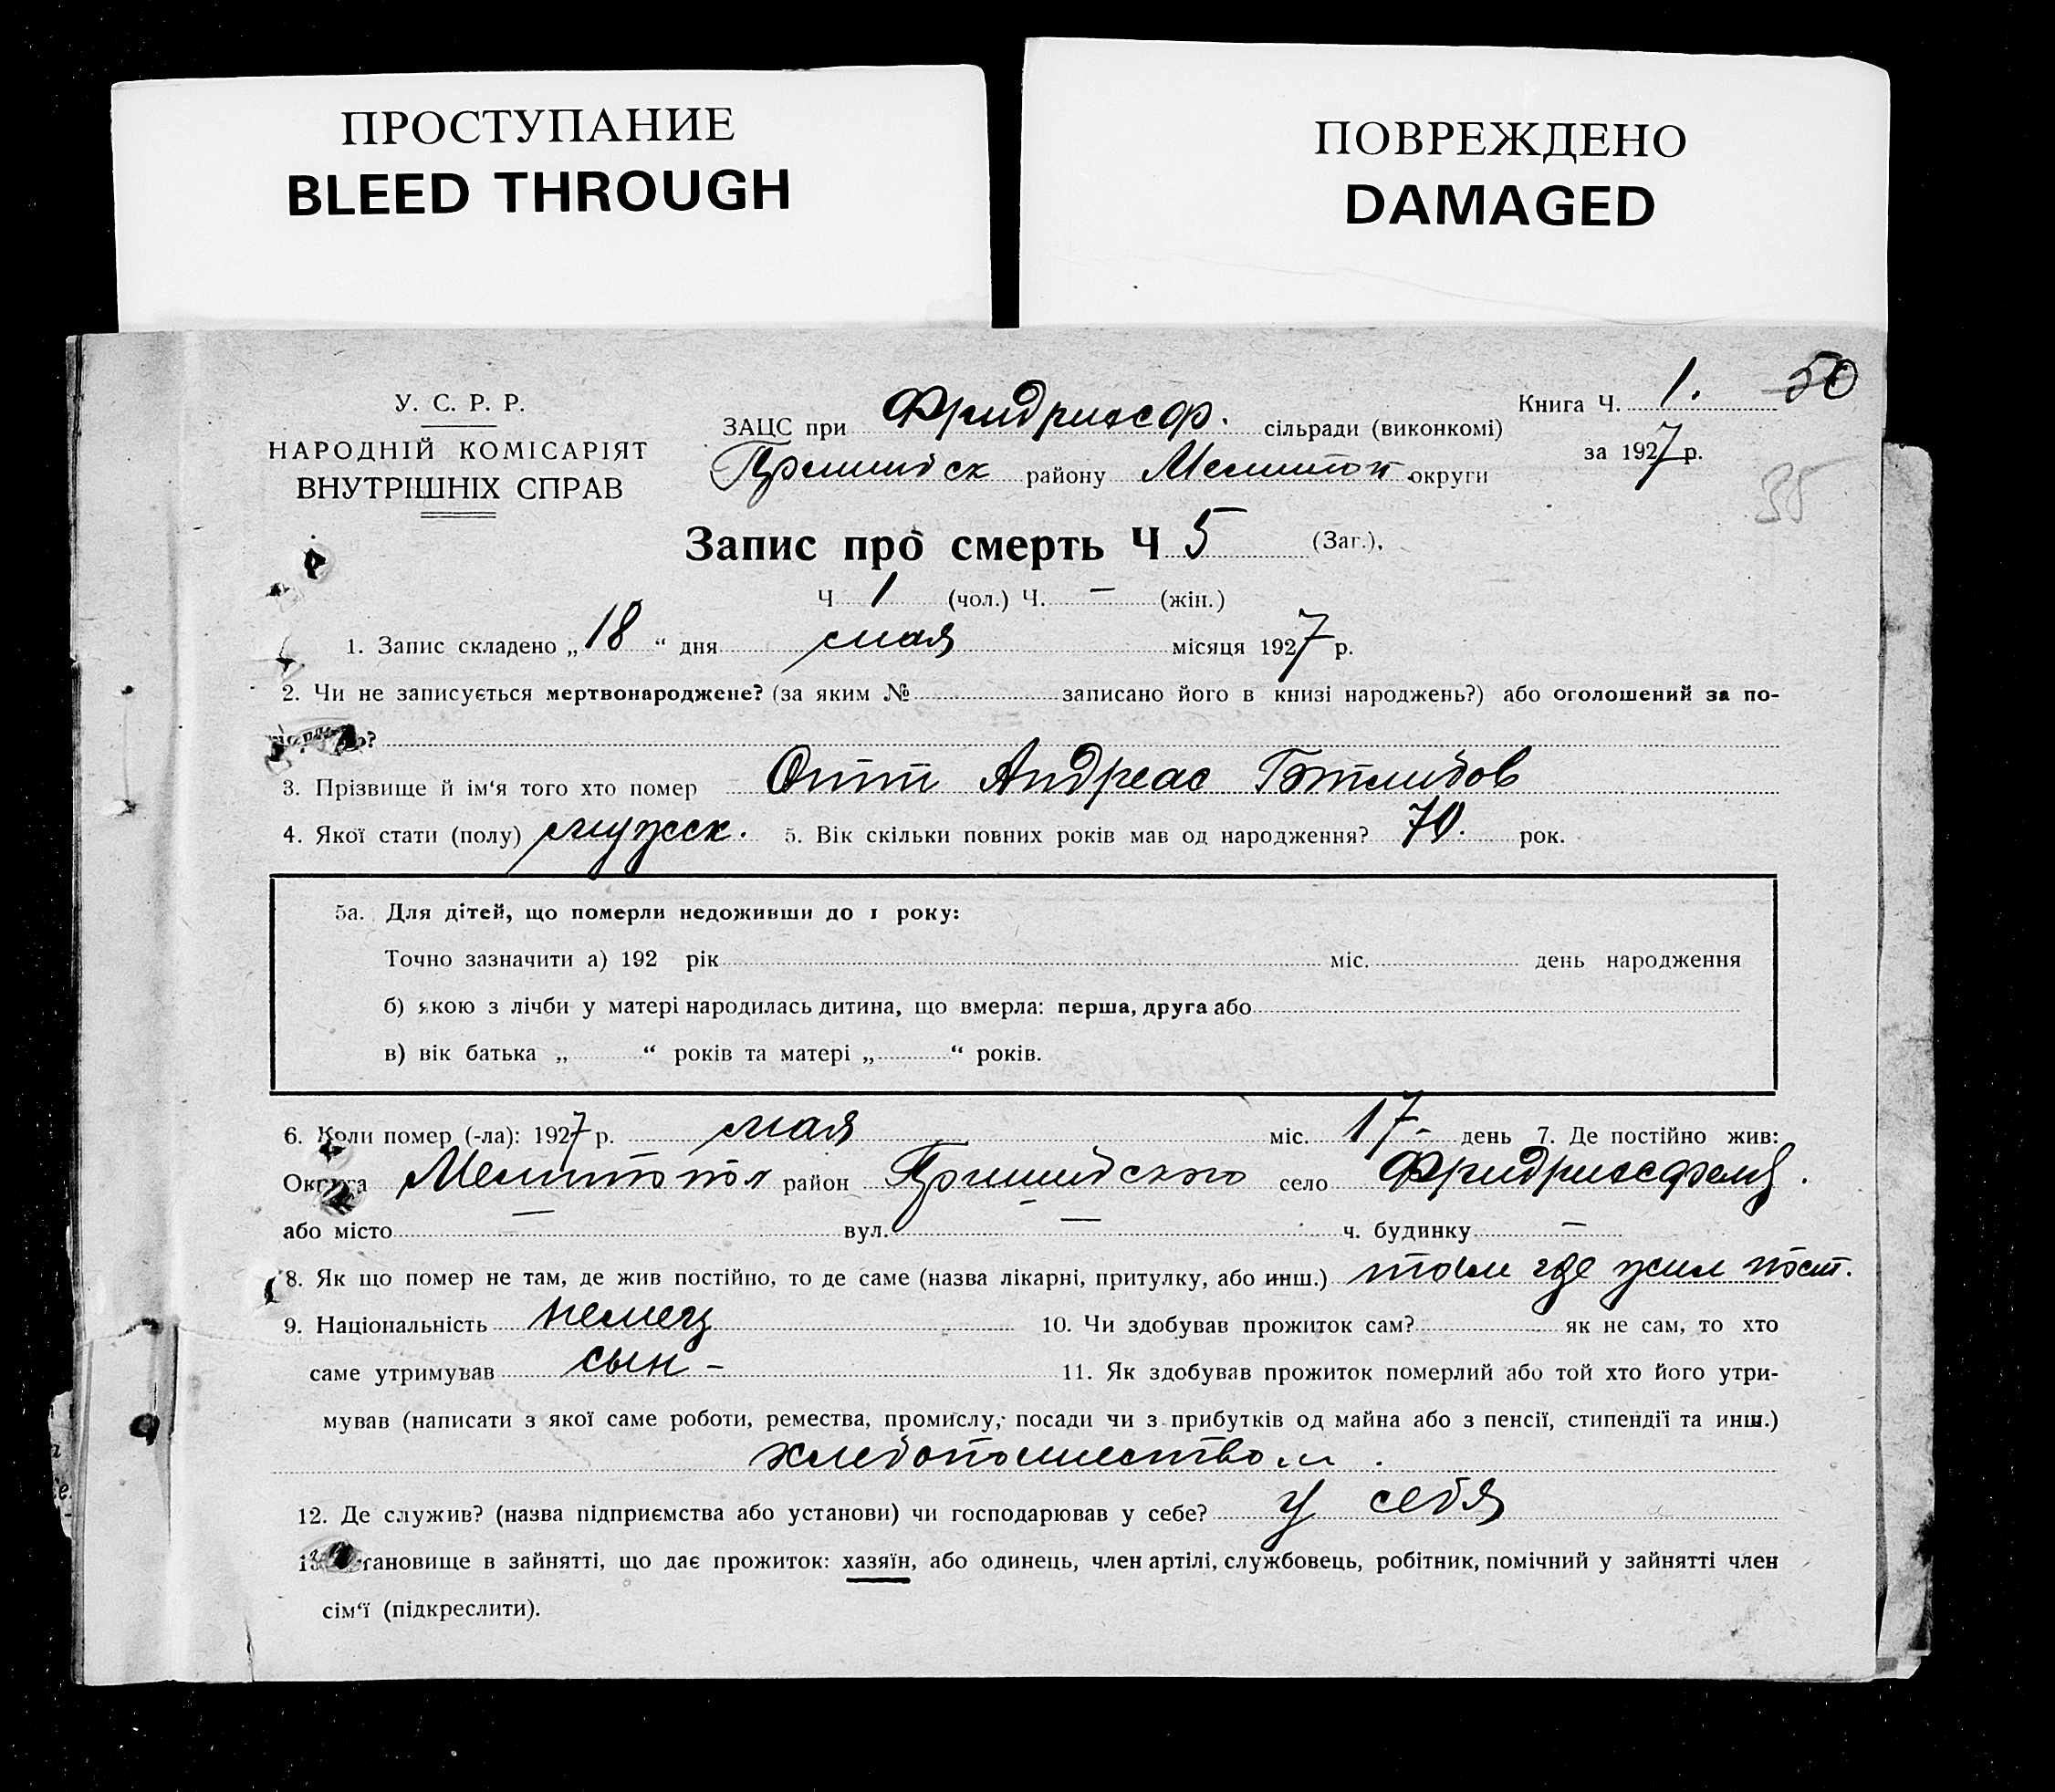 ПРОСТУПАНИЕ
BLEED THROUGH
ПОВРЕЖДЕНО
DAMAGED
У. С. Р. Р.
НАРОДНІЙ КОМІСАРІЯТ
ВНУТРІШНІХ СПРАВ
ЗАЦС при Фридрихсф. сільради (виконкомі)
Пришибск району Мелитоп округи
Книга Ч. 1. 50
за 1927 р.
35
Запис про смерть Ч 5 (Заг.),
Ч 1 (чол.) Ч. — (жін.)
1. Запис складено „ 18 “ дня мая місяця 1927 р.
2. Чи не записується мертвонароджене? (за яким № записано його в книзі народжень?) або оголошений за по-
3. Прізвище й ім‘я того хто помер Отт Андреас Готлибов
4. Якої стати (полу) мужск. 5. Вік скільки повних років мав од народження? 70. рок.
5а. Для дітей, що померли недоживши до 1 року:
Точно зазначити а) 192 рік міс. день народження
б) якою з лічби у матері народилась дитина, що вмерла: перша, друга або
в) вік батька „ “ років та матері „ “ років.
6. Коли помер (-ла): 1927 р. мая міс. 17- день 7. Де постійно жив:
Округа Мелитопол район Пришибского село Фридрихсфельд.
або місто — вул. — ч. будинку —
8. Як що помер не там, де жив постійно, то де саме (назва лікарні, притулку, або инш.) там где жил пост.
9. Національність немец 10. Чи здобував прожиток сам? як не сам, то хто
саме утримував сын - 11. Як здобував прожиток померлий або той хто його утри-
мував (написати з якої саме роботи, ремества, промислу, посади чи з прибутків од майна або з пенсії, стипендії та инш.)
хлебопашеством.
12. Де служив? (назва підприємства або установи) чи господарював у себе? у себя
13. Становище в зайнятті, що дає прожиток: хазяїн, або одинець, член артілі, службовець, робітник, помічний у зайнятті член
сім‘ї (підкреслити).